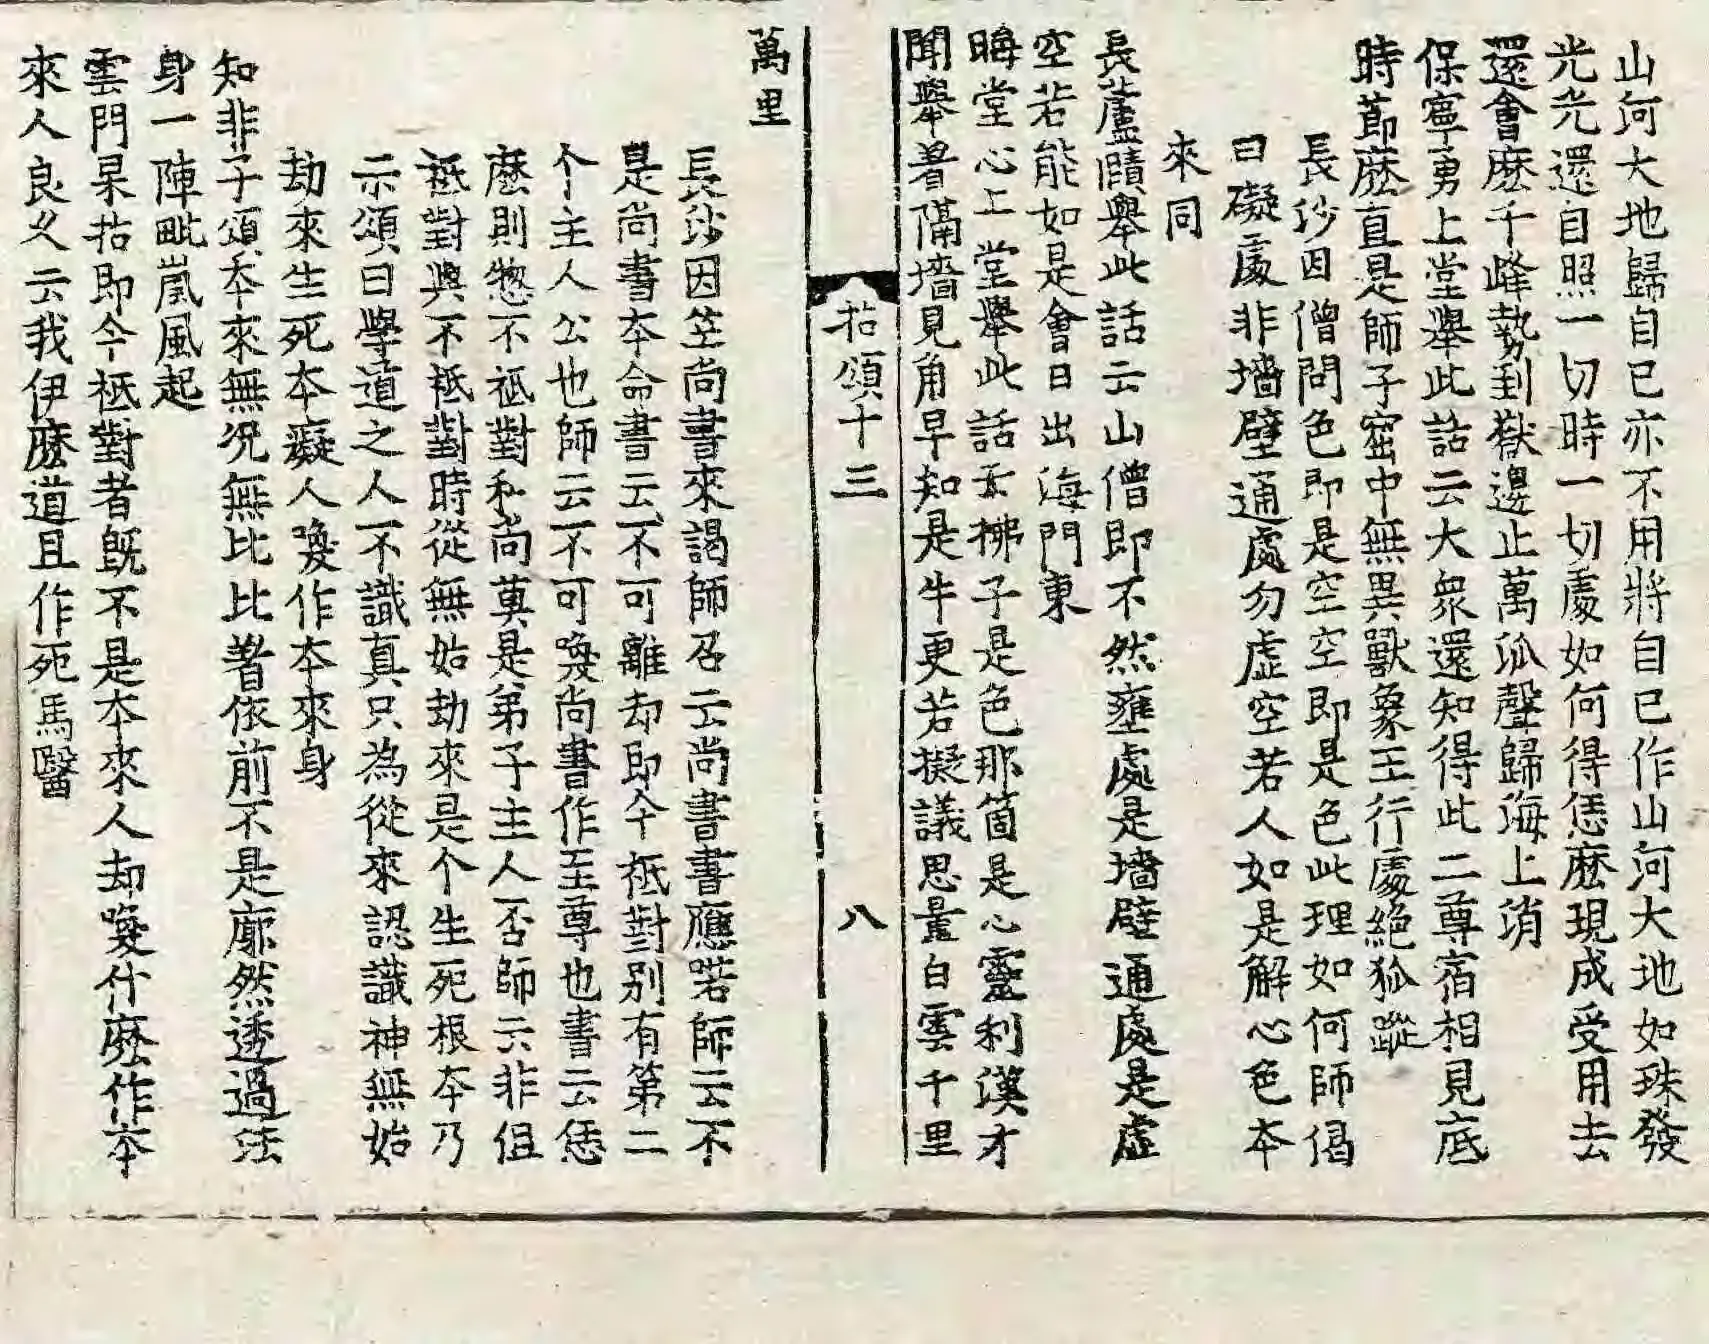 山河大地歸自已亦不用將自已作山河大地如珠發
光光還自照一切時一切處如何得恁麽現成受用去
還會麽千峰勢到嶽邊止萬泒聲歸海上消
保寧勇上堂舉此話云大衆還知得此二尊宿相見底
時莭麽直是師子窟中無異獸象王行處絕狐蹤
長沙因僧問色即是空空即是色此理如何師偈
曰礙處非墻壁通處勿虚空若人如是解心色夲
來同
長蘆賾舉此話云山僧即不然壅處是墻壁通處是虚
空若能如是會日出海門東
晦堂心上堂舉此話云拂子是色那箇是心靈利漢才
聞舉著隔墻見角早知是牛更若擬議思量白雲千里
拈頌十三
八
萬里
長沙因笁尚書來謁師召云尚書書應喏師云不
是尚書夲命書云不可離却即今祗對别有第二
个主人公也師云不可喚尚書作至尊也書云恁
麽則惣不祗對和尚莫是弟子主人否師云非但
祗對與不祗對時從無始劫來是个生死根夲乃
示頌曰學道之人不識真只為從來認識神無始
劫來生死夲癡人喚作夲來身
知非子頌夲來無况無比比著依前不是廓然透過法
身一陣毗嵐風起
雲門杲拈即今祗對者旣不是夲來人却喚什麽作夲
來人良久云我伊麽道且作死馬醫